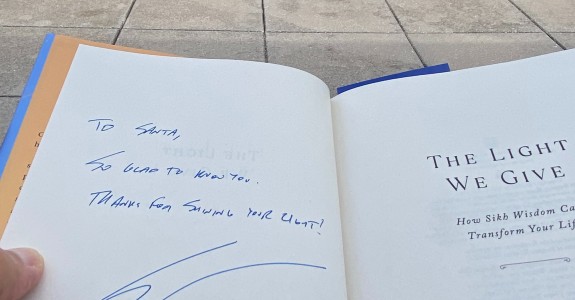 TO SANTA,
SO GLAD TO KNOW YOU.
THANKS FOR SHINING YOUR LIGHT!
THE LIGHT
WE GIVE
How Sikh Wisdom Ca
Transform Your Lif